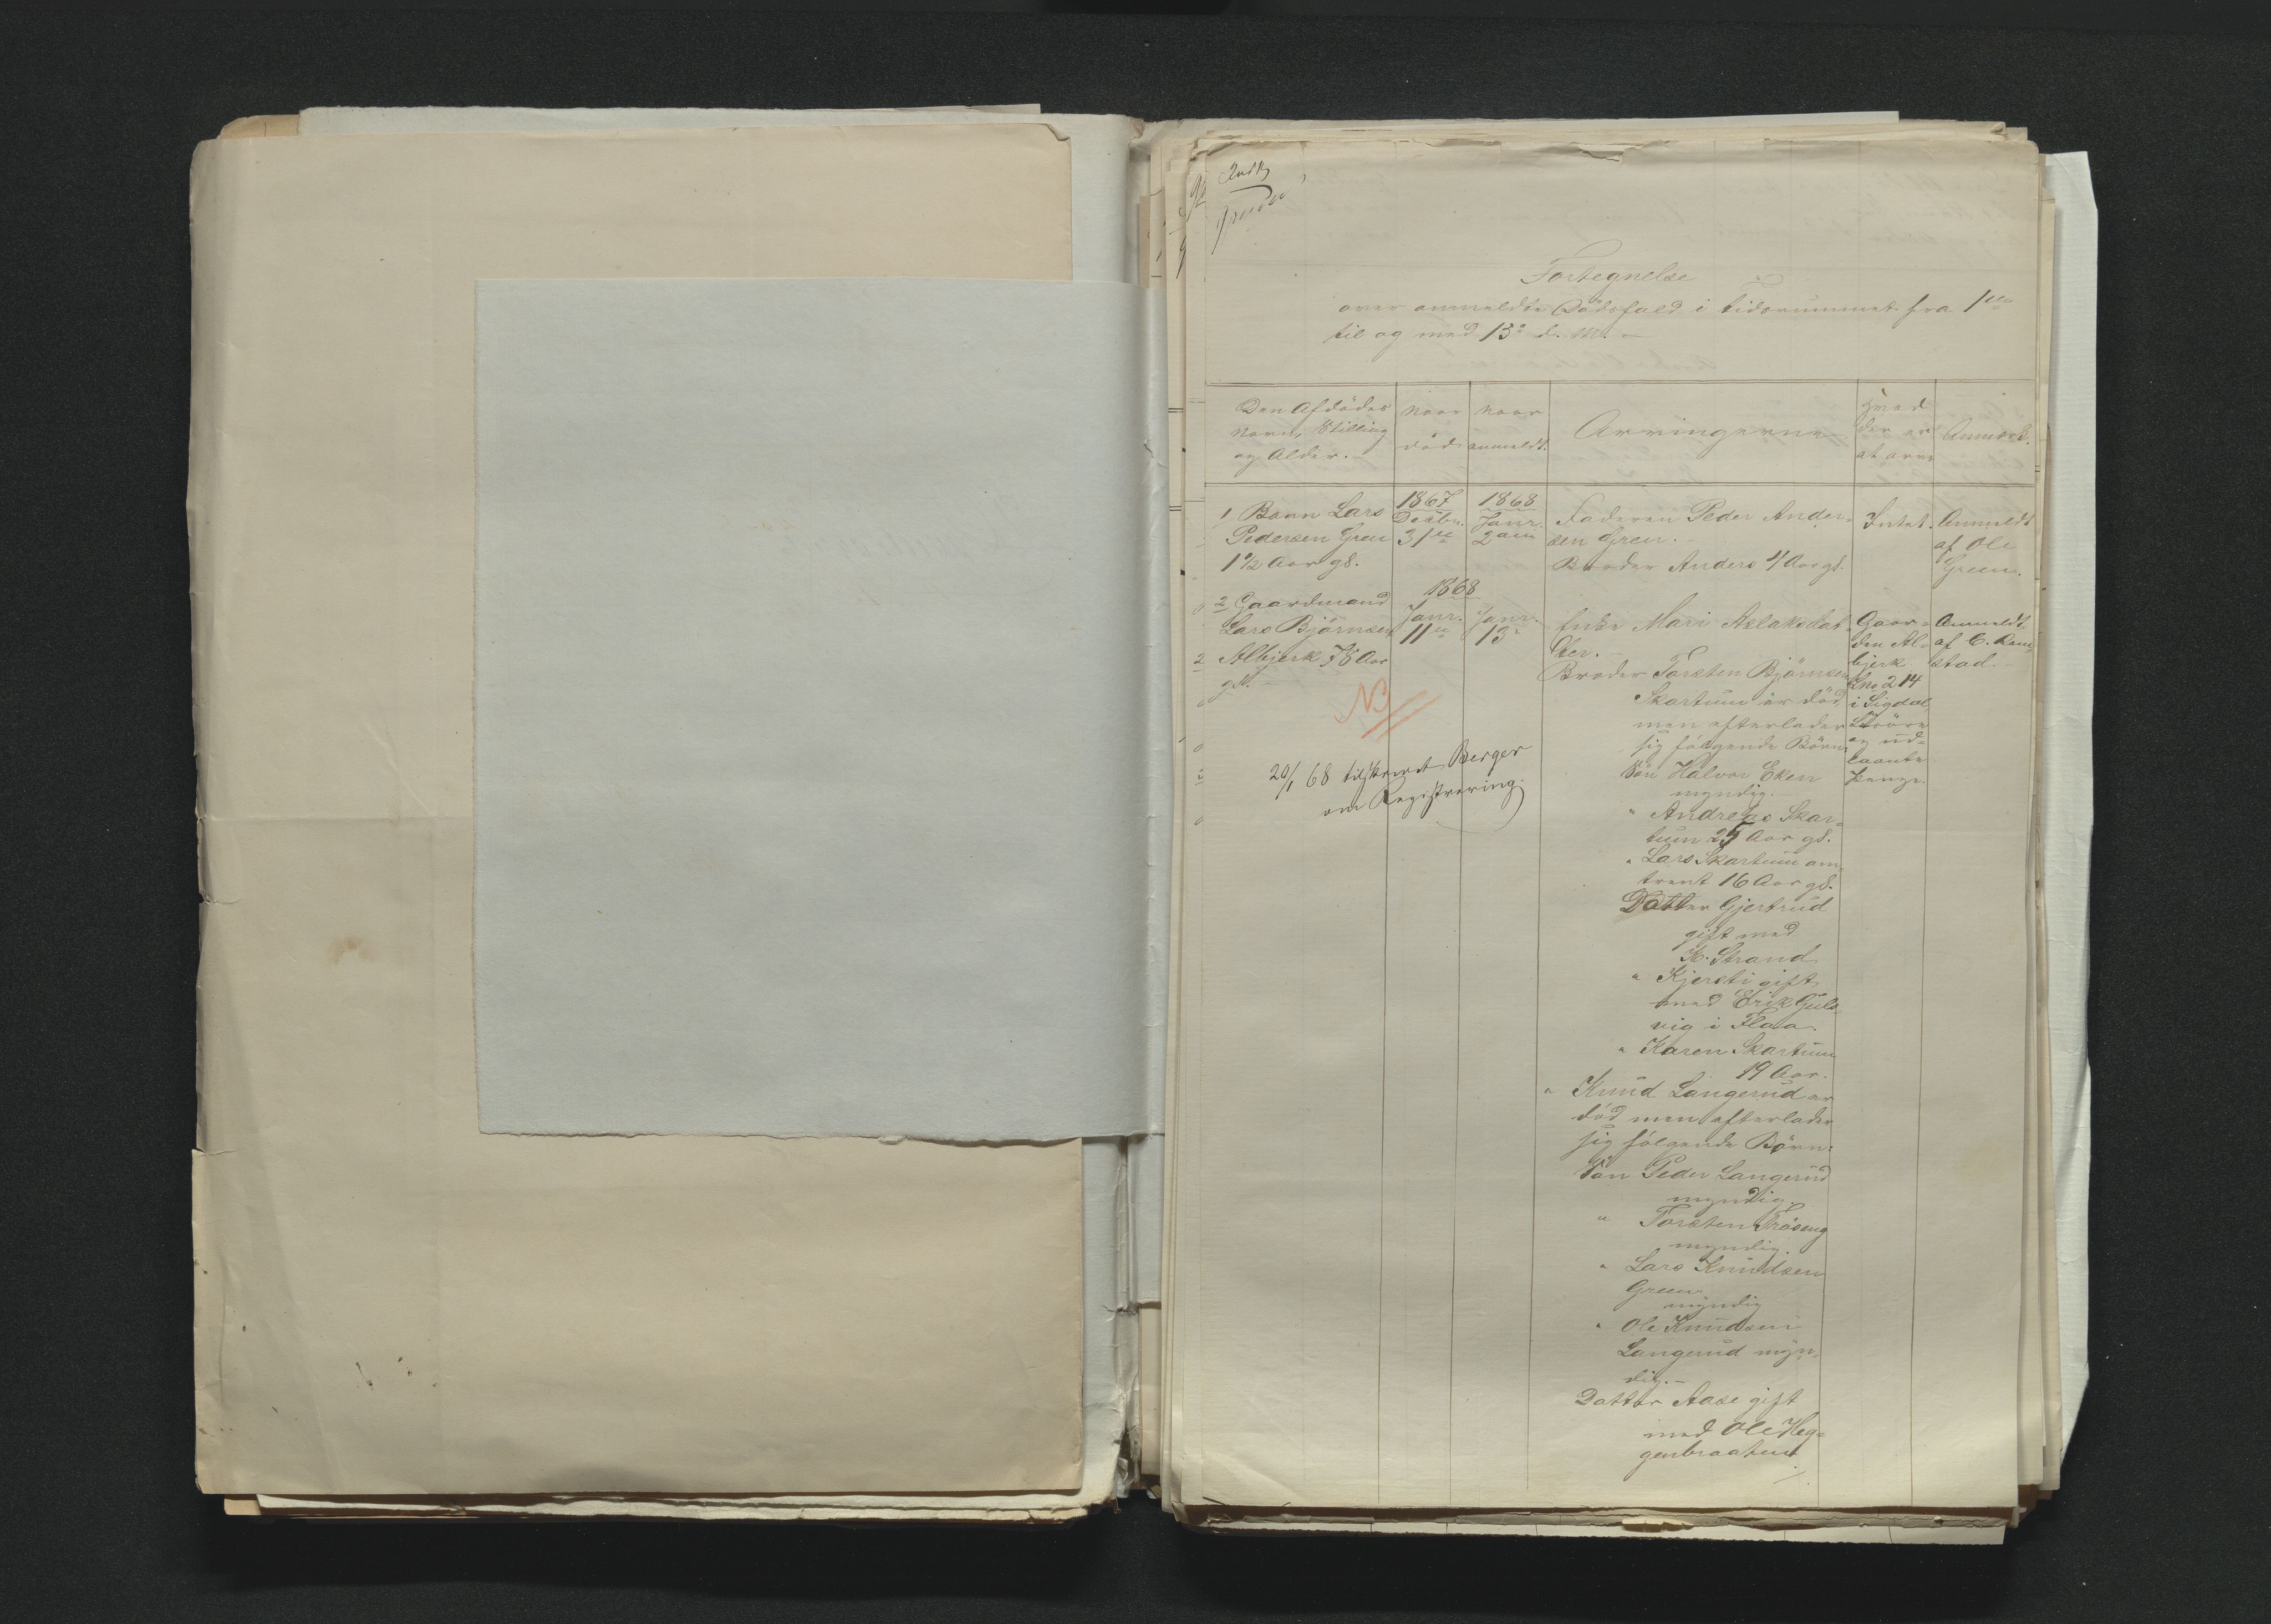 Fortegnelse
over anmeldte Dödsfald i Tidsrummet fra 1ste
til og med 13de d. M. —
Den Afdödes
Navn, Stilling
og Alder. —
Naar
död
Naar
anmeldt.
Arvingerne
Hvad
der er
at arve
Anmærk.
1 Barn Lars
Pedersen Gren
1 1/2 Aar gl.
1867
Decbr.
31te
1868
Janr.
2den
Faderen Peder Ander-
sen Gren. -
Broder Anders 4 Aar gl.
Intet.
Anmeldt
af Ole
Green.
2 Gaardmand
Lars Björnsen
Albjerk 78 Aar
gl. —
1868
Janr.
11te
Janr.
13de
Enke Mari Aslaksdat-
ter. —
Broder Torsten Björnsen
Skartum er död,
men efterlader
sig fölgende Börn:
Sön Halvor Eken
myndig. —
" Andreas Skar-
tum 25 Aar gl.
" Lars Skartum om-
trent 16 Aar gl.
Datter Gjertrud
gift med
K. Strand
" Kjersti gift
med Erik Guls-
vig i Flaa.
" Karen Skartum
19 Aar.
" Knud Langerud er
död men efterlader
sig fölgende Börn:
Sön Peder Langerud
myndig.
" Torsten Tröseng
myndig.
" Lars Knudsen
Green
myndig
" Ole Knudsen
Langerud myn-
dig. —
Datter Aase gift
med Ole Heg-
genbraaten.
Gaar-
den Al-
bjerk
Lno 214
i Sigdal,
Löröre
og ud-
laante
Penge.
Anmeldt
af C. Ram-
stad. —
NB
20/1 68 tilskrevet Berger
om Registrering.